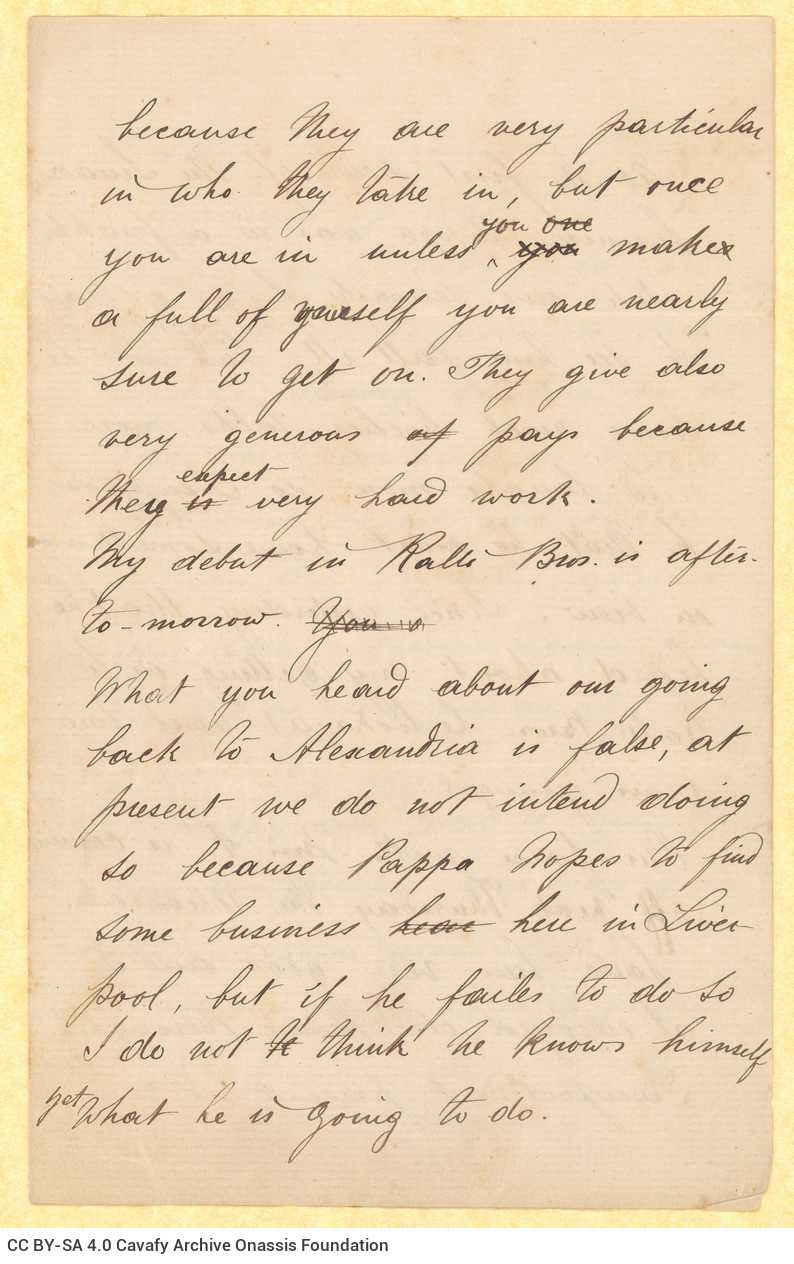 because they are very particular
in who they take in, but once
you one
you are in unless you make
a full of yourself you are nearly
sure to get on. They give also
very generous of pays because
expect
they is very hard work.
My debut in Ralli Bros. is after-
to-morrow. You
What you heard about our going
back to Alexandria is false, at
present we do not intend doing
so because Pappa hopes to find
some business hear here in Liver
pool, but if he failes to do so
I do not h think he knows himself
yet what he is going to do.
CC BY-SA 4.0 Cavafy Archive Onassis Foundation